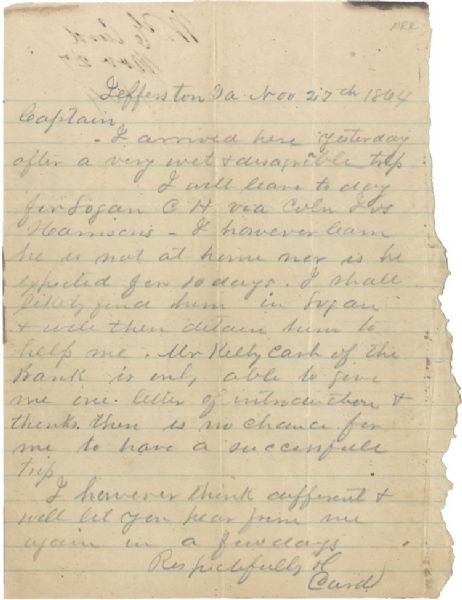 NRR
W. C. Card
Nov 27
Jefferston Va Nov 27th 1864
Captain,
- I arrived here yesterday
after a very wet & disagrible trip
I will leave to day
for Logan C H via Coln
Harrisons - I however learn
he is not at home nor is he
expected for 10 days. I shall
likely find him in Logan
& will then detain him to
help me. Mr Kelly Cash of the
Bank is only able to give
me one letter of introduction &
thinks there is no chance for
me to have a successfull
trip
I however think different &
will let you hear from me
again in a few days
Respectfully
Card